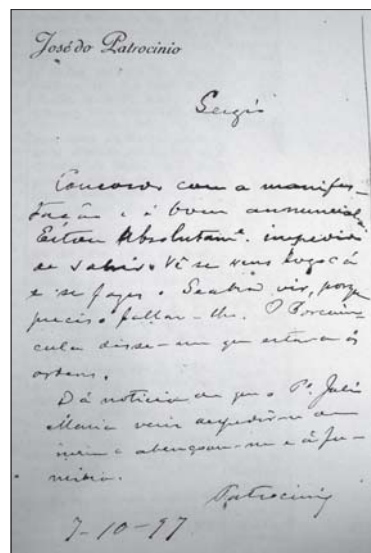 José do Patrocinio
Sergio
Concordo com a manifes-
tação e é bom annuncial-a
Estou absolutamᵉ. impedido
de sahir. Vê se vens logo cá
e se fazes o Seabra vir, porque
preciso fallar-lhe. O Porciun-
cula disse-me que estava ás
ordens.
Dá noticia de que o Pᵉ. Julio
Maria veiu despedir-se de
mim e abençoou-me e á fa-
milia.
Patrocinio
7-10-97